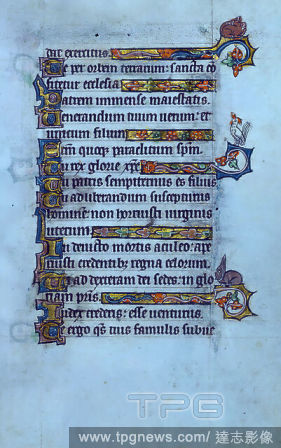 dat exercitus.
Te per orbem terrarum: sancta cō
fitetur ecclesia
Patrem immense maiestatis.
Venerandum tuum verum: et
unicum filium
Sanctū quoqȝ paraclitum spm̄.
Tu rex glorie xp̄e
Tu patris sempiternus es filius
Tu ad liberandum suscepturus
hominē: non horruisti virginis
uterum
Tu devicto mortis aculeo: ape
ruisti credentibȝ regna celorum.
Tu ad dexteram dei sedes: in glo
riam pr̄is.
Iudex crederis: esse venturus.
Te ergo qs̄ tuis famulis subve
TPG
www.tpgnews.com/達志影像